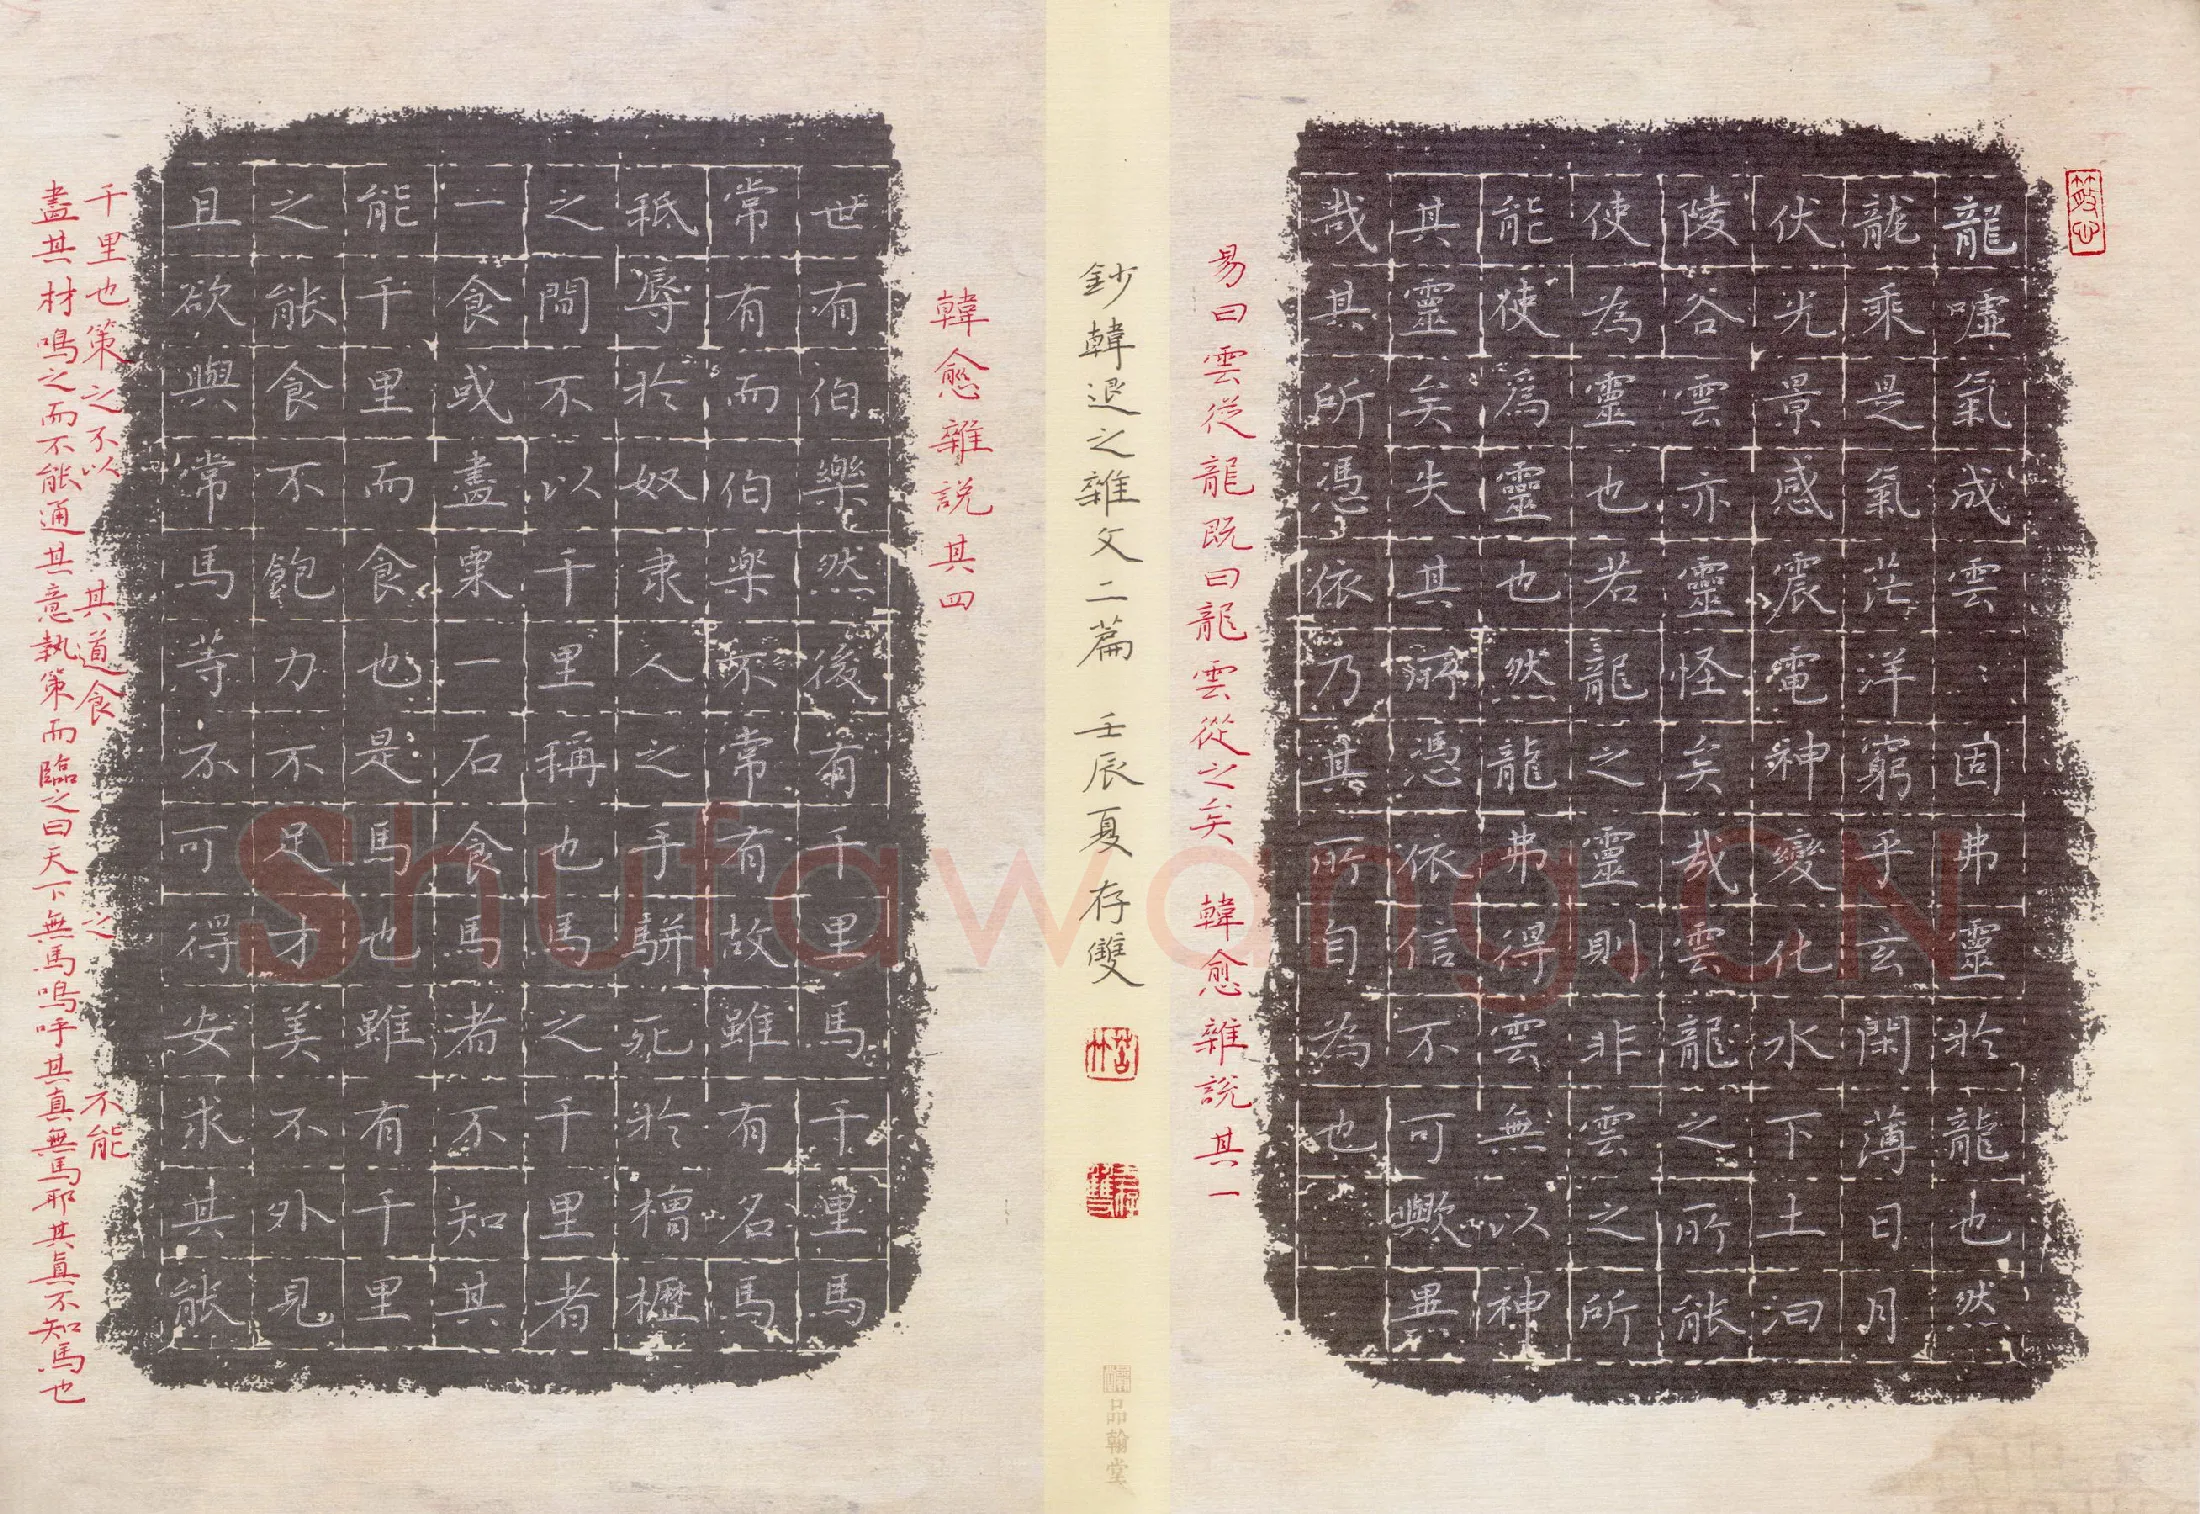 龍噓氣成雲﹕固弗靈於龍也然
龍乘是氣茫洋窮乎玄閑薄日月
伏光景感震電神變化水下土汩
陵谷雲亦靈怪矣哉雲龍之所能
使為靈也若龍之靈則非雲之所
能使爲靈也然龍弗得雲無以神
其靈矣失其所憑依信不可歟異
哉其所憑依乃其所自為也
易曰雲從龍既曰龍雲從之矣 韓愈雜說其一
鈔韓退之雜文二篇 壬辰夏存雙
品翰堂
韓愈雜說其四
世有伯樂然後有千里馬千里馬
常有而伯樂不常有故雖有名馬
秪辱於奴隶人之手駢死於槽櫪
之間不以千里稱也馬之千里者
一食或盡粟一石食馬者不知其
能千里而食也是馬也雖有千里
之能食不飽力不足才美不外見
且欲與常馬等不可得安求其能
千里也策之不以 其道食 之 不能
盡其材鳴之而不能通其意執策而臨之曰天下無馬嗚呼其真無馬耶其真不知馬也
Shufawang.CN